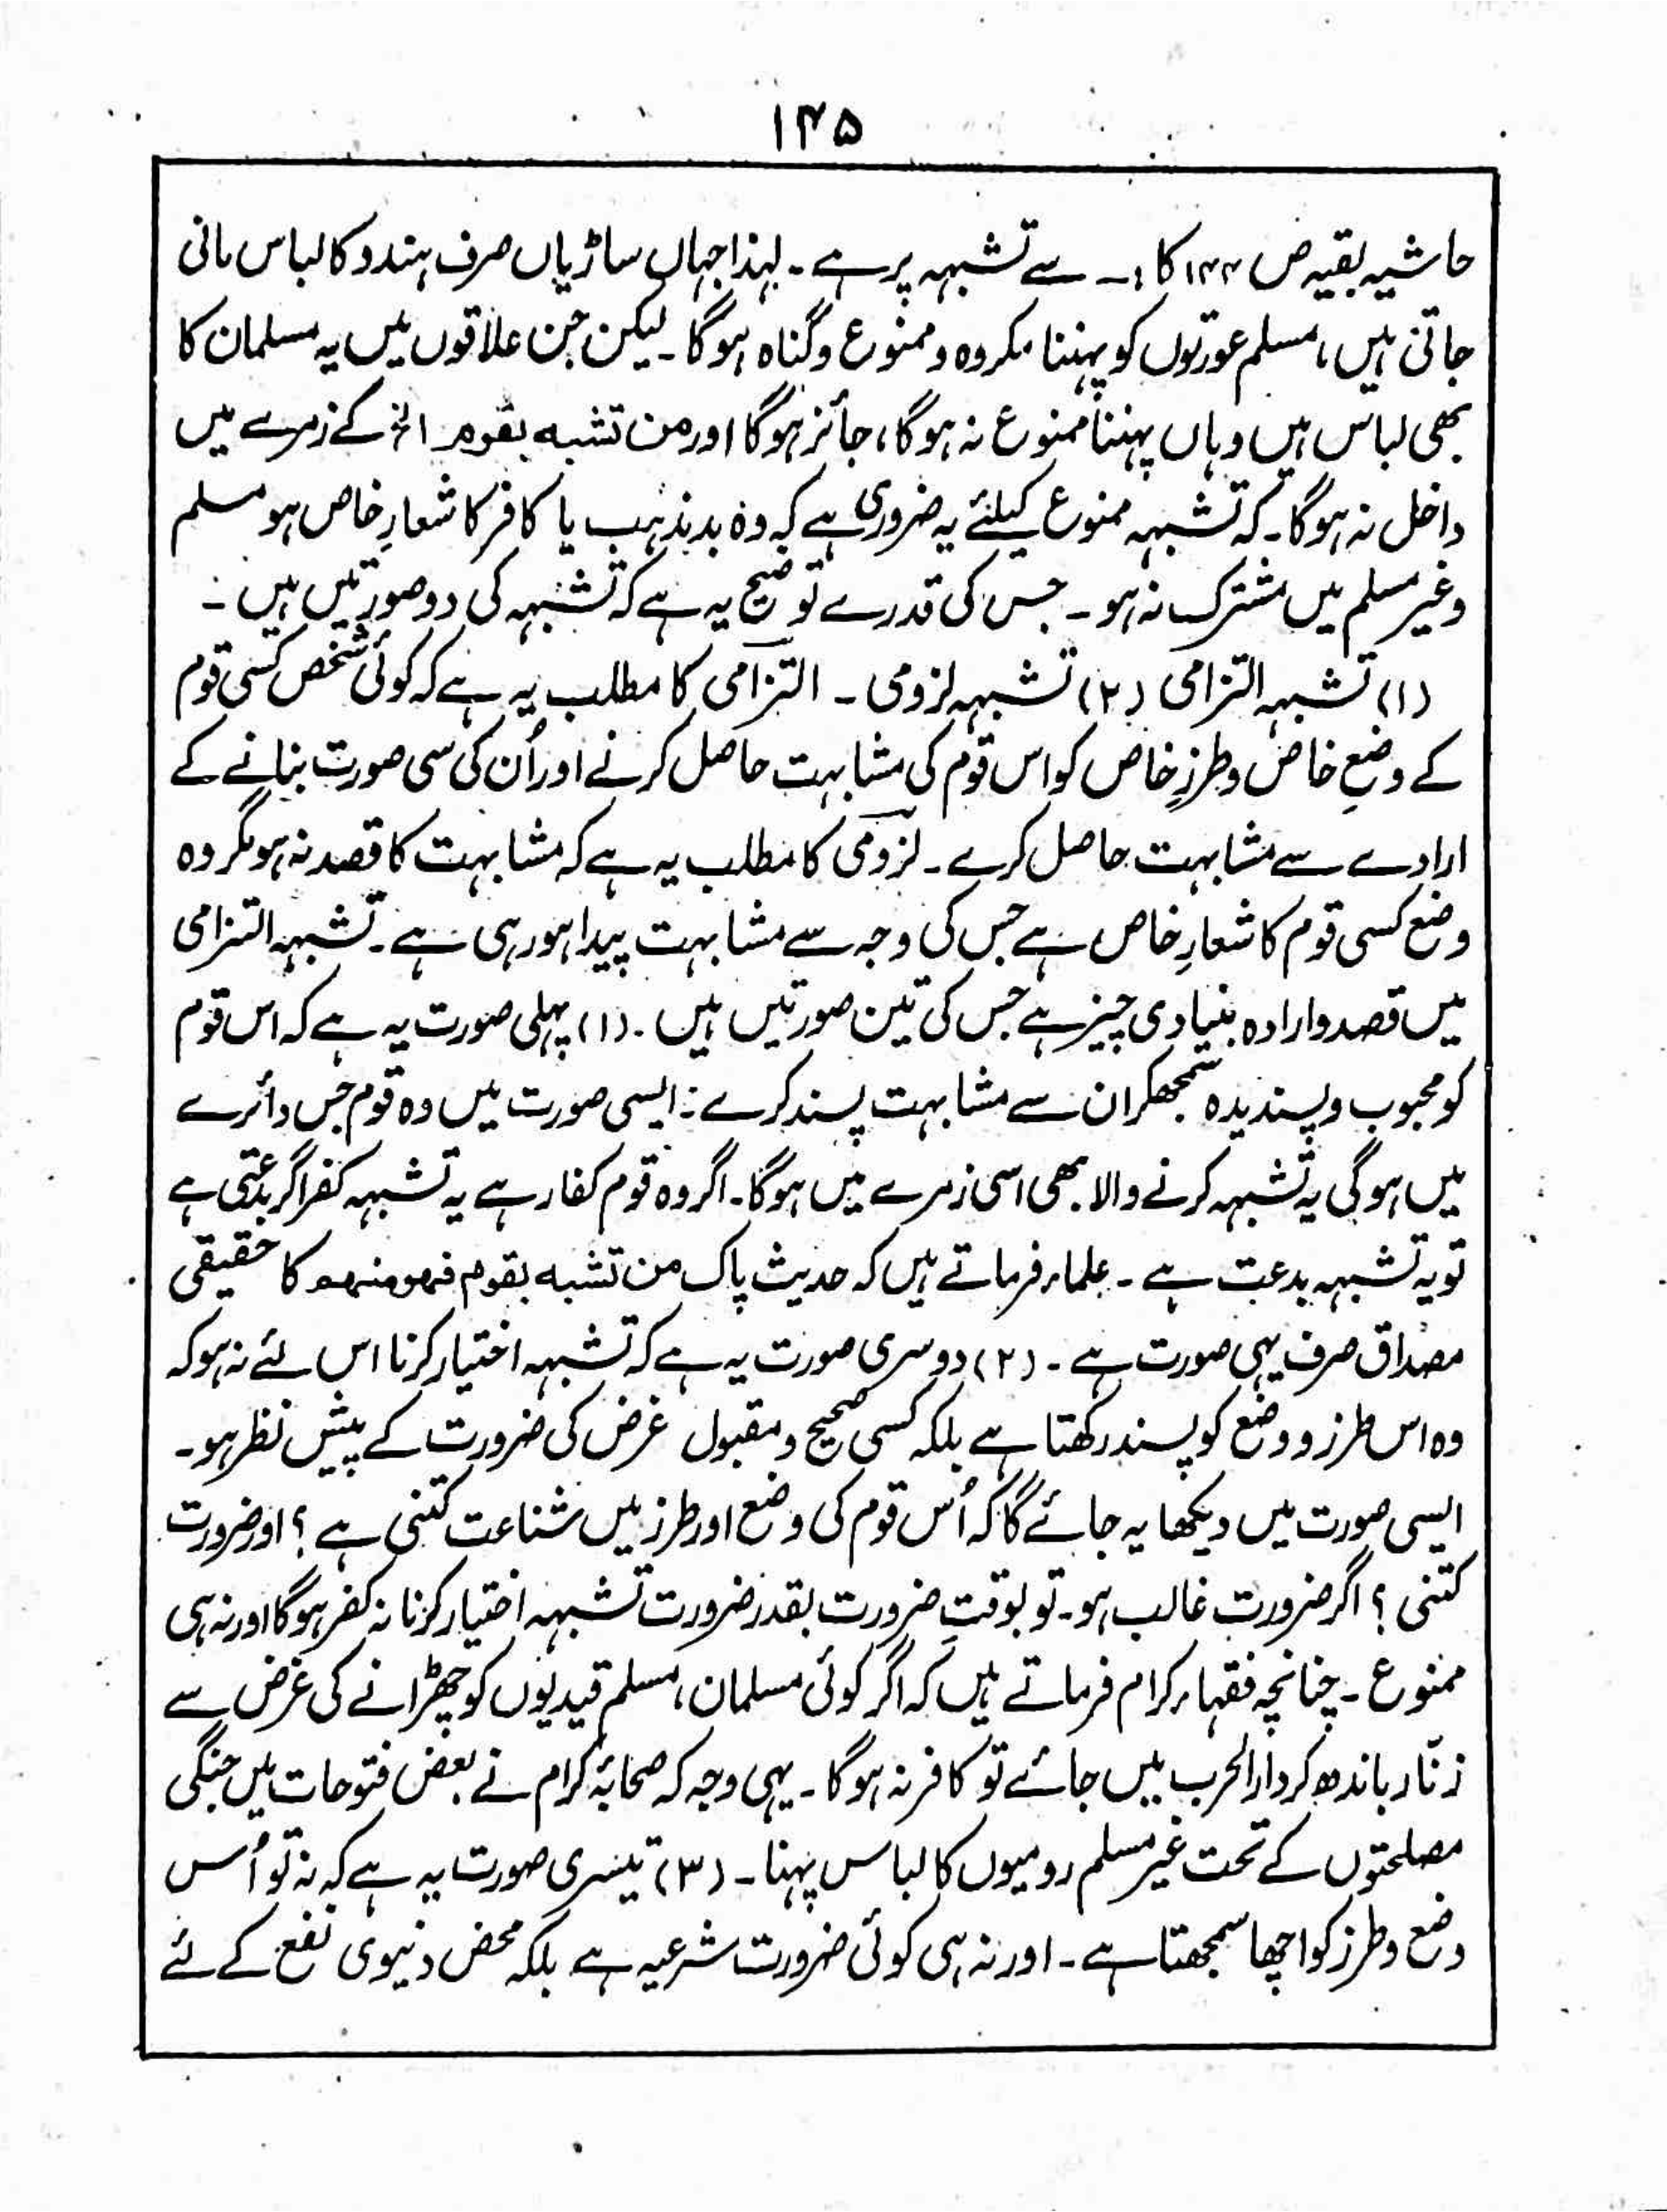 ۱۴۵
حاشیہ بقیہ ص ۱۴۴ کا :۔ سے تشبہہ پر ہے ۔ لہٰذا جہاں ساڑیاں صرف ہندو کا لباس مانی
جاتی ہیں، مسلم عورتوں کو پہننا مکروہ و ممنوع و گناہ ہوگا ۔ لیکن جن علاقوں میں یہ مسلمان کا
بھی لباس ہیں وہاں پہننا ممنوع نہ ہوگا، جائز ہوگا اور من تشبہ بقوم الخ کے زمرے میں
داخل نہ ہوگا ۔ کہ تشبہہ ممنوع کیلئے یہ ضروری ہے کہ وہ بدمذہب یا کافر کا شعارِ خاص ہو مسلم
و غیر مسلم میں مشترک نہ ہو ۔ جس کی قدرے توضیح یہ ہے کہ تشبہہ کی دو صورتیں ہیں :۔
(۱) تشبہہ التزامی (۲) تشبہہ لزومی ۔ التزامی کا مطلب یہ ہے کہ کوئی شخص کسی قوم
کے وضعِ خاص و طرزِ خاص کو اس قوم کی مشابہت حاصل کرنے اور اُن کی سی صورت بنانے کے
ارادے سے مشابہت حاصل کرے ۔ لزومی کا مطلب یہ ہے کہ مشابہت کا قصد نہ ہو مگر وہ
وضع کسی قوم کا شعارِ خاص ہے جس کی وجہ سے مشابہت پیدا ہو رہی ہے ۔ تشبہہ التزامی
میں قصد و ارادہ بنیادی چیز ہے جس کی تین صورتیں ہیں ۔ (۱) پہلی صورت یہ ہے کہ اس قوم
کو محبوب و پسندیدہ سمجھکر ان سے مشابہت پسند کرے : ایسی صورت میں وہ قوم جس دائرے
میں ہوگی یہ تشبہہ کرنے والا بھی اسی زمرے میں ہوگا ۔ اگر وہ قوم کفار ہے یہ تشبہہ کفر اگر بدعتی ہے
تو یہ تشبہہ بدعت ہے ۔ علماء فرماتے ہیں کہ حدیث پاک من تشبہ بقوم فھو منھم کا حقیقی
مصداق صرف یہی صورت ہے ۔ (۲) دوسری صورت یہ ہے کہ تشبہہ اختیار کرنا اس لئے نہ ہو کہ
وہ اس طرز و وضع کو پسند رکھتا ہے بلکہ کسی صحیح و مقبول غرض کی ضرورت کے پیش نظر ہو ۔
ایسی صورت میں دیکھا یہ جائے گا کہ اُس قوم کی وضع اور طرز میں شناعت کتنی ہے ؟ اور ضرورت
کتنی ؟ اگر ضرورت غالب ہو ۔ تو بوقتِ ضرورت بقدر ضرورت تشبہہ اختیار کرنا نہ کفر ہوگا اور نہ ہی
ممنوع ۔ چنانچہ فقہاء کرام فرماتے ہیں کہ اگر کوئی مسلمان، مسلم قیدیوں کو چھڑانے کی غرض سے
زنّار باندھ کر دارالحرب میں جائے تو کافر نہ ہوگا ۔ یہی وجہ کہ صحابۂ کرام نے بعض فتوحات میں جنگی
مصلحتوں کے تحت غیر مسلم رومیوں کا لباس پہنا ۔ (۳) تیسری صورت یہ ہے کہ نہ تو اُس
وضع و طرز کو اچھا سمجھتا ہے ۔ اور نہ ہی کوئی ضرورت شرعیہ ہے بلکہ محض دنیوی نفع کے لئے